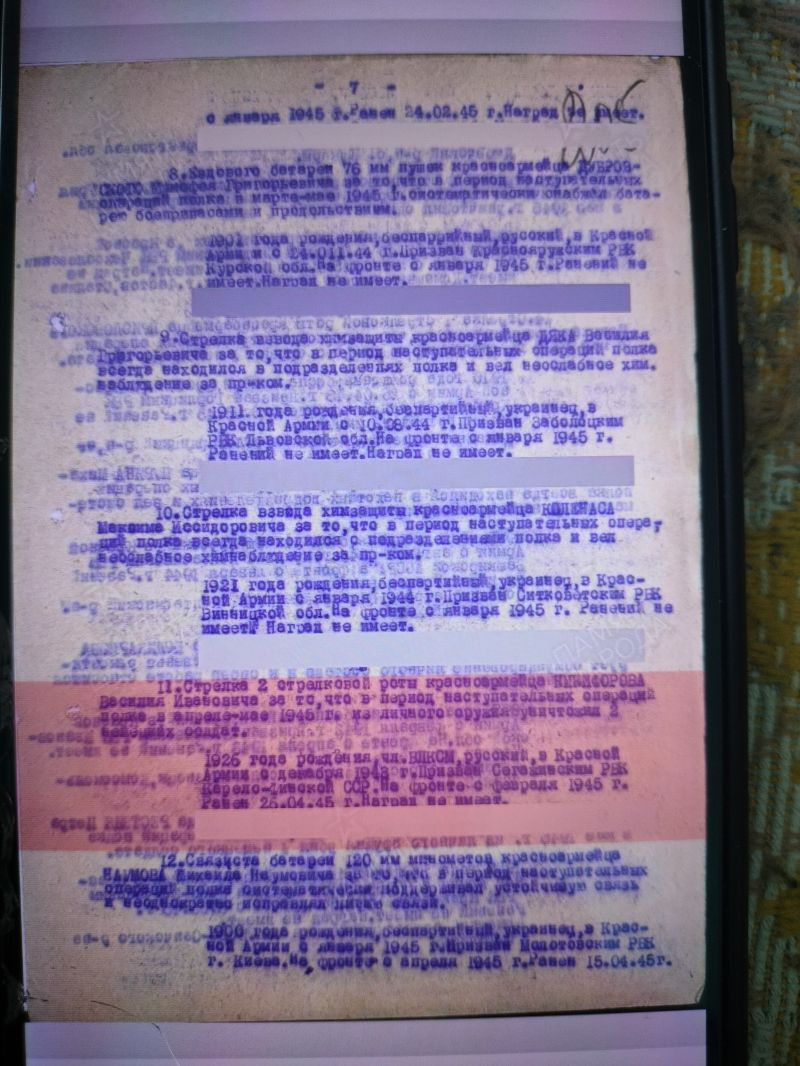 - 7 -
с января 1945 г.Ранен 24.02.45 г.Наград не имеет.
8.Ездового батареи 76 мм пушек красноармейца ДУБРОВ-
СКОГО Тимофея Григорьевича за то,что в период наступательных
операций полка в марте-мае 1945 г.систематически снабжал бата-
рею боеприпасами и продольствием.
1901 года рождения,беспартийный,русский,в Красной
Армии с г.Призван Краснояружским РВК
Курской обл.На фронте с января 1945 г.Ранений не
имеет.Наград не имеет.
9.Стрелка взвода химзащиты красноармейца ДЯКА Василия
Григорьевича за то,что в период наступательных операций полка
всегда находился в подразделениях полка и вел неослабное хим.
наблюдение за пр-ком.
1911 года рождения,беспартийный,украинец,в
Красной Армии с 10.08.44 г.Призван Заболоцким
РВК Львовской обл.На фронте с января 1945 г.
Ранений не имеет.Наград не имеет.
10.Стрелка взвода химзащиты красноармейца
Максима Иссидоровича за то,что в период наступательных опера-
ций полка всегда находился с подразделениями полка и вел
неослабное химнаблюдение за пр-ком.
1921 года рождения,беспартийный,украинец,в Крас-
ной Армии с января 1944 г.Призван Ситковетским РВК
Винницкой обл.На фронте с января 1945 г. Ранений не
имеет. Наград не имеет.
11.Стрелка 2 стрелковой роты красноармейца НИКИФОРОВА
Василия Ивановича за то,что в период наступательных операций
полка в апреле-мае 1945 г. из личного оружия уничтожил 2
немецких солдат.
1925 года рождения,чл.ВЛКСМ,русский,в Красной
Армии с декабря 1943 г.Призван Сегежинским РВК
Карело-Финской ССР.На фронте с февраля 1945 г.
Ранен 25.04.45 г.Наград не имеет.
12.Связиста батареи 120 мм минометов красноармейца
НАУМОВА Михаила Наумовича за то,что в период наступательных
операций полка систематически поддерживал устойчивую связь
и неоднократно исправлял линию связи.
1900 года рождения,беспартийный,украинец,в Крас-
ной Армии с января 1945 г.Призван Молотовским РВК
г. Киева.На фронте с апреля 1945 г.Ранен 15.04.45г.